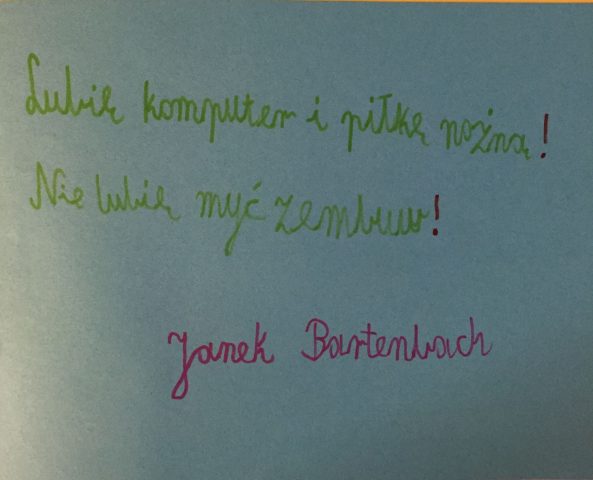 Lubię komputer i piłkę nożną!
Nie lubię myć zembuw!
Janek Bartenbach